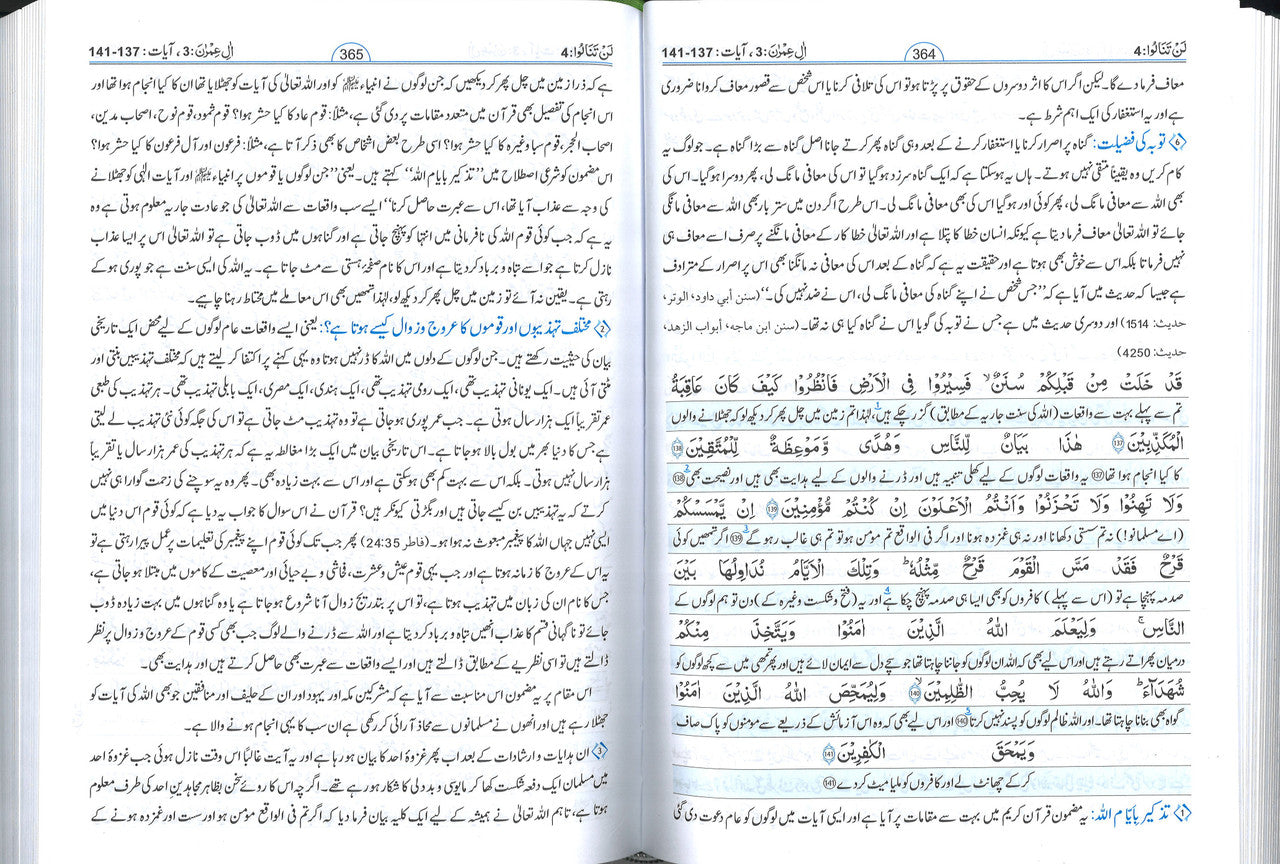 لَنْ تَنَالُوا: 4
364
اٰلِ عِمْرٰن: 3، آیات: 137-141
معاف فرما دے گا۔ لیکن اگر اس کا اثر دوسروں کے حقوق پر پڑتا ہو تو اس کی تلافی کرنا یا اس شخص سے قصور معاف کروانا ضروری
ہے اور یہ استغفار کی ایک اہم شرط ہے۔
﴿6﴾ توبہ کی فضیلت: گناہ پر اصرار کرنا یا استغفار کرنے کے بعد وہی گناہ پھر کرتے جانا اصل گناہ سے بڑا گناہ ہے۔ جو لوگ یہ
کام کریں وہ یقیناً متقی نہیں ہوتے۔ ہاں یہ ہو سکتا ہے کہ ایک گناہ سرزد ہو گیا تو اس کی معافی مانگ لی، پھر دوسرا ہو گیا۔ اس کی
بھی اللہ سے معافی مانگ لی، پھر کوئی اور ہو گیا اس کی بھی معافی مانگ لی۔ اس طرح اگر دن میں ستر بار بھی اللہ سے معافی مانگی
جائے تو اللہ تعالیٰ معاف فرما دیتا ہے کیونکہ انسان خطا کا پتلا ہے اور اللہ تعالیٰ خطا کار کے معافی مانگنے پر صرف اسے معاف ہی
نہیں فرماتا بلکہ اس سے خوش بھی ہوتا ہے اور حقیقت یہ ہے کہ گناہ کے بعد اس کی معافی نہ مانگنا بھی اس پر اصرار کے مترادف
ہے جیسا کہ حدیث میں آیا ہے کہ ”جس شخص نے اپنے گناہ کی معافی مانگ لی، اس نے ضد نہیں کی۔“ (سنن أبي داود، الوتر،
حديث: 1514) اور دوسری حدیث میں ہے جس نے توبہ کی گویا اس نے گناہ کیا ہی نہ تھا۔ (سنن ابن ماجه، أبواب الزهد،
حديث: 4250)
قَدْ خَلَتْ مِنْ قَبْلِكُمْ سُنَنٌ ۙ فَسِيْرُوْا فِي الْاَرْضِ فَانْظُرُوْا كَيْفَ كَانَ عَاقِبَةُ
تم سے پہلے بہت سے واقعات (اللہ کی سنت جاریہ کے مطابق) گزر چکے ہیں،1 لہٰذا تم زمین میں چل پھر کر دیکھ لو کہ جھٹلانے والوں
الْمُكَذِّبِيْنَ ۝137 هٰذَا بَيَانٌ لِّلنَّاسِ وَهُدًى وَّمَوْعِظَةٌ لِّلْمُتَّقِيْنَ ۝138
کا کیا انجام ہوا تھا 137 یہ واقعات لوگوں کے لیے کھلی تنبیہ ہیں اور ڈرنے والوں کے لیے ہدایت بھی ہیں اور نصیحت بھی2 138
وَلَا تَهِنُوْا وَلَا تَحْزَنُوْا وَاَنْتُمُ الْاَعْلَوْنَ اِنْ كُنْتُمْ مُّؤْمِنِيْنَ ۝139 اِنْ يَّمْسَسْكُمْ
(اے مسلمانو!) نہ تم سستی دکھانا اور نہ ہی غمزدہ ہونا اور اگر فی الواقع تم مومن ہو تو تم ہی غالب رہو گے3 139 اگر تمھیں کوئی
قَرْحٌ فَقَدْ مَسَّ الْقَوْمَ قَرْحٌ مِّثْلُهٗ ؕ وَتِلْكَ الْاَيَّامُ نُدَاوِلُهَا بَيْنَ
صدمہ پہنچا ہے تو (اس سے پہلے) کافروں کو بھی ایسا ہی صدمہ پہنچ چکا ہے4 اور یہ (فتح و شکست وغیرہ کے) دن تو ہم لوگوں کے
النَّاسِ ۚ وَلِيَعْلَمَ اللّٰهُ الَّذِيْنَ اٰمَنُوْا وَيَتَّخِذَ مِنْكُمْ
درمیان پھراتے رہتے ہیں اور اس لیے بھی کہ اللہ ان لوگوں کو جاننا چاہتا تھا جو سچے دل سے ایمان لائے ہیں اور پھر تمھی میں سے کچھ لوگوں کو
شُهَدَآءَ ؕ وَاللّٰهُ لَا يُحِبُّ الظّٰلِمِيْنَ ۝140 وَلِيُمَحِّصَ اللّٰهُ الَّذِيْنَ اٰمَنُوْا
گواہ بھی بنانا چاہتا تھا۔ اور اللہ ظالم لوگوں کو پسند نہیں کرتا5 140 اور اس لیے بھی کہ وہ اس آزمائش کے ذریعے سے مومنوں کو پاک صاف
وَيَمْحَقَ الْكٰفِرِيْنَ ۝141
کر کے چھانٹ لے اور کافروں کو ملیامیٹ کر دے 141
﴿1﴾ تذکیر بایّام اللہ: یہ مضمون قرآن کریم میں بہت سے مقامات پر آیا ہے اور ایسی آیات میں لوگوں کو عام دعوت دی گئی
لَنْ تَنَالُوا: 4
365
اٰلِ عِمْرٰن: 3، آیات: 137-141
ہے کہ ذرا زمین میں چل پھر کر دیکھیں کہ جن لوگوں نے انبیاء ﷩ کو اور اللہ تعالیٰ کی آیات کو جھٹلایا تھا ان کا کیا انجام ہوا تھا اور
اس انجام کی تفصیل بھی قرآن میں متعدد مقامات پر دی گئی ہے، مثلاً: قوم عاد کا کیا حشر ہوا؟ قوم ثمود، قوم نوح، اصحاب مدین،
اصحاب الحجر، قوم سبا وغیرہ کا کیا حشر ہوا؟ اسی طرح بعض اشخاص کا بھی ذکر آتا ہے، مثلاً: فرعون اور آل فرعون کا کیا حشر ہوا؟
اس مضمون کو شرعی اصطلاح میں ”تذکیر بایام اللہ“ کہتے ہیں۔ یعنی ”جن لوگوں یا قوموں پر انبیاء ﷩ اور آیات الٰہی کو جھٹلانے
کی وجہ سے عذاب آیا تھا، اس سے عبرت حاصل کرنا“ ایسے سب واقعات سے اللہ تعالیٰ کی جو عادت جاریہ معلوم ہوتی ہے وہ
یہ ہے کہ جب کوئی قوم اللہ کی نافرمانی میں انتہا کو پہنچ جاتی ہے اور گناہوں میں ڈوب جاتی ہے تو اللہ تعالیٰ اس پر ایسا عذاب
نازل کرتا ہے جو اسے تباہ و برباد کر دیتا ہے اور اس کا نام صفحۂ ہستی سے مٹ جاتا ہے۔ یہ اللہ کی ایسی سنت ہے جو پوری ہو کے
رہتی ہے۔ یقین نہ آئے تو زمین میں چل پھر کر دیکھ لو، لہٰذا تمھیں بھی اس معاملے میں محتاط رہنا چاہیے۔
﴿2﴾ مختلف تہذیبوں اور قوموں کا عروج و زوال کیسے ہوتا ہے؟: یعنی ایسے واقعات عام لوگوں کے لیے محض ایک تاریخی
بیان کی حیثیت رکھتے ہیں۔ جن لوگوں کے دلوں میں اللہ کا ڈر نہیں ہوتا وہ یہی کہنے پر اکتفا کر لیتے ہیں کہ مختلف تہذیبیں بنتی اور
مٹتی آئی ہیں۔ ایک یونانی تہذیب تھی، ایک رومی تہذیب تھی، ایک ہندی، ایک مصری، ایک بابلی تہذیب تھی۔ ہر تہذیب کی طبعی
عمر تقریباً ایک ہزار سال ہوتی ہے۔ جب عمر پوری ہو جاتی ہے تو وہ تہذیب مٹ جاتی ہے تو اس کی جگہ کوئی نئی تہذیب لے لیتی
ہے جس کا دنیا بھر میں بول بالا ہو جاتا ہے۔ اس تاریخی بیان میں ایک بڑا مغالطہ یہ ہے کہ ہر تہذیب کی عمر ہزار سال یا تقریباً
ہزار سال نہیں ہوتی۔ بلکہ اس سے بہت کم بھی ہو سکتی ہے اور اس سے بہت زیادہ بھی۔ پھر وہ یہ سوچنے کی زحمت گوارا ہی نہیں
کرتے کہ یہ تہذیبیں بن کیسے جاتی ہیں اور بگڑتی کیونکر ہیں؟ قرآن نے اس سوال کا جواب یہ دیا ہے کہ کوئی قوم اس دنیا میں
ایسی نہیں جہاں اللہ کا پیغمبر مبعوث نہ ہوا ہو۔ (فاطر 24:35) پھر جب تک کوئی قوم اپنے پیغمبر کی تعلیمات پر عمل پیرا رہتی ہے تو
یہ اس کے عروج کا زمانہ ہوتا ہے اور جب یہی قوم عیش و عشرت، فحاشی و بے حیائی اور معصیت کے کاموں میں مبتلا ہو جاتی ہے،
جس کا نام ان کی زبان میں تہذیب ہوتا ہے، تو اس پر بتدریج زوال آنا شروع ہو جاتا ہے یا وہ گناہوں میں بہت زیادہ ڈوب
جائے تو ناگہانی قسم کا عذاب انھیں تباہ و برباد کر دیتا ہے اور اللہ سے ڈرنے والے لوگ جب بھی کسی قوم کے عروج و زوال پر نظر
ڈالتے ہیں تو اسی نظریے کے مطابق ڈالتے ہیں اور ایسے واقعات سے عبرت بھی حاصل کرتے ہیں اور ہدایت بھی۔
اس مقام پر یہ مضمون اس مناسبت سے آیا ہے کہ مشرکین مکہ اور یہود اور ان کے حلیف اور منافقین جو بھی اللہ کی آیات کو
جھٹلا رہے ہیں اور انھوں نے مسلمانوں سے محاذ آرائی کر رکھی ہے ان سب کا یہی انجام ہونے والا ہے۔
﴿3﴾ ان ہدایات و ارشادات کے بعد اب پھر غزوۂ احد کا بیان ہو رہا ہے اور یہ آیت غالباً اس وقت نازل ہوئی جب غزوۂ احد
میں مسلمان ایک دفعہ شکست کھا کر مایوسی و بددلی کا شکار ہو رہے تھے۔ اگرچہ اس کا روئے سخن بظاہر مجاہدین احد کی طرف معلوم
ہوتا ہے، تاہم اللہ تعالیٰ نے ہمیشہ کے لیے ایک کلیہ بیان فرما دیا کہ اگر تم فی الواقع مومن ہو اور سست اور غمزدہ ہونے کے